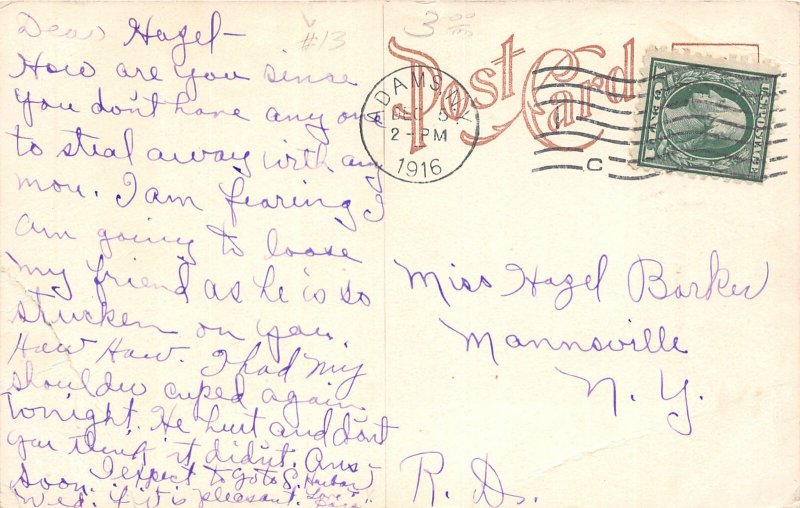 Dear Hazel-
How are you since
you don't have any one
to steal away with any
mou. I am fearing I
am going to loose
my friend as he is so
strucken on you.
Haw Haw. I had my
shoulder cuped again
tonight. He hurt and don't
you think it didn't. Ans-
soon. I expect to go to S. Harbor
Wed. if it is pleasant. Love
#13
3.00
Post Card
ADAMS, N.Y.
DEC 5
2-PM
1916
C
Miss Hazel Barker
Mannsville
N. Y.
R. D.